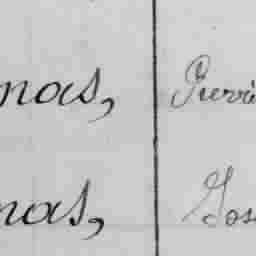 nas, Pierri
nas, Jos